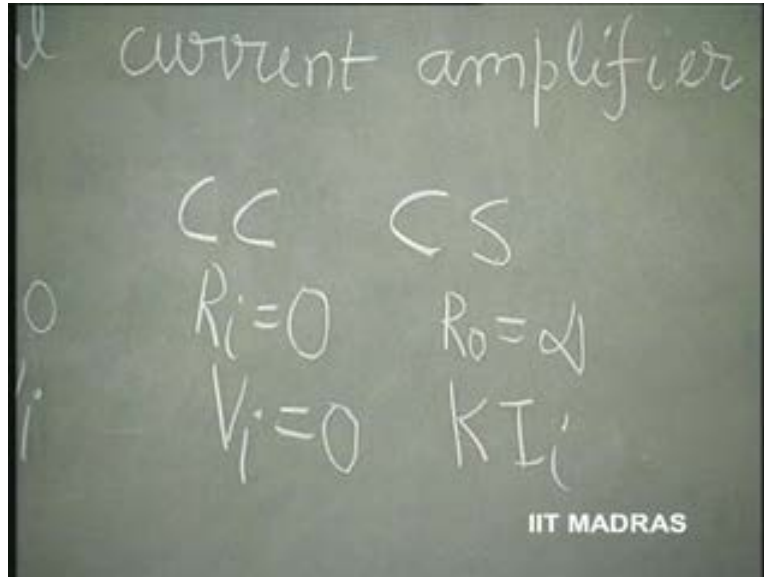 l current amplifier
CC CS
0 Ri=0 Ro=∞
i Vi=0 KIi
IIT MADRAS